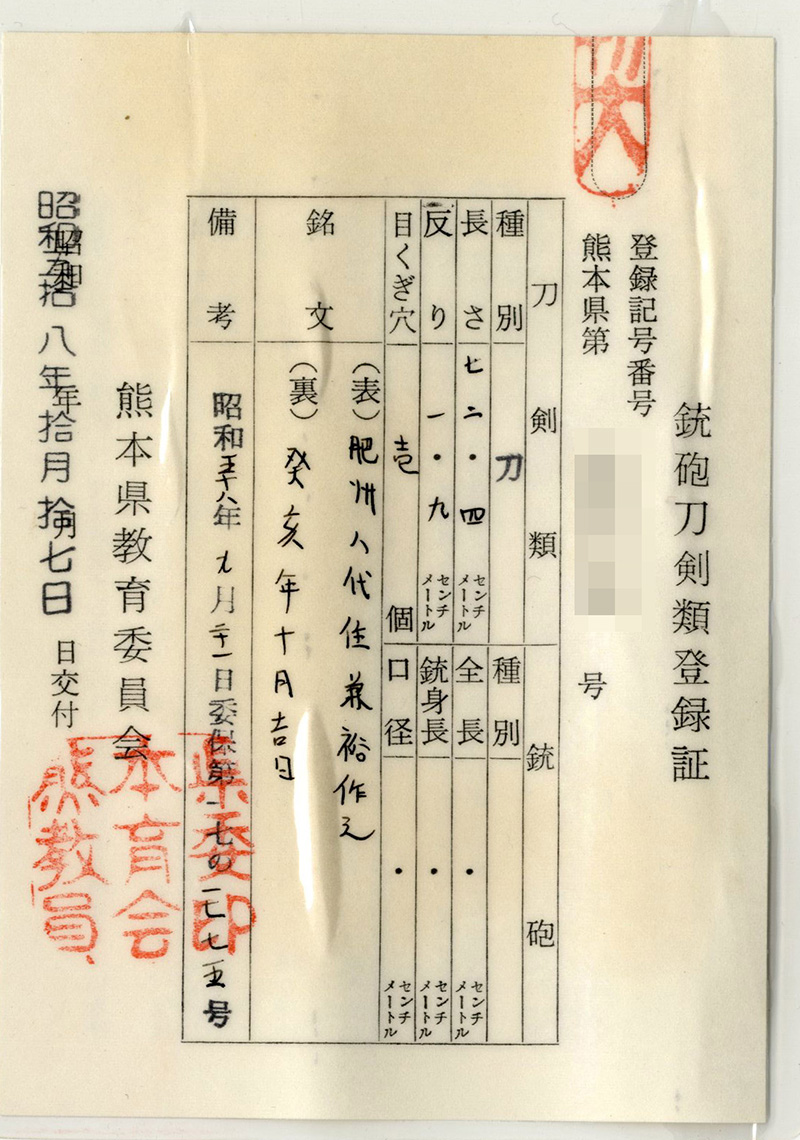 銃砲刀剣類登録証
登録記号番号
熊本県第 号
刀剣類
銃砲
種別 刀
長さ 七二・四 センチメートル
反り 一・九 センチメートル
目くぎ穴 壱 個
種別
全長 ・ センチメートル
銃身長 ・ センチメートル
口径 ・ センチメートル
銘文
(表)肥州八代住兼裕作之
(裏)癸亥年十月吉日
備考
昭和五十八年九月二十一日委保第 七の 七五号
熊本県教育委員会
昭和 年 月 日交付
昭和五拾八年拾月拾七日
熊本県教育委員会印